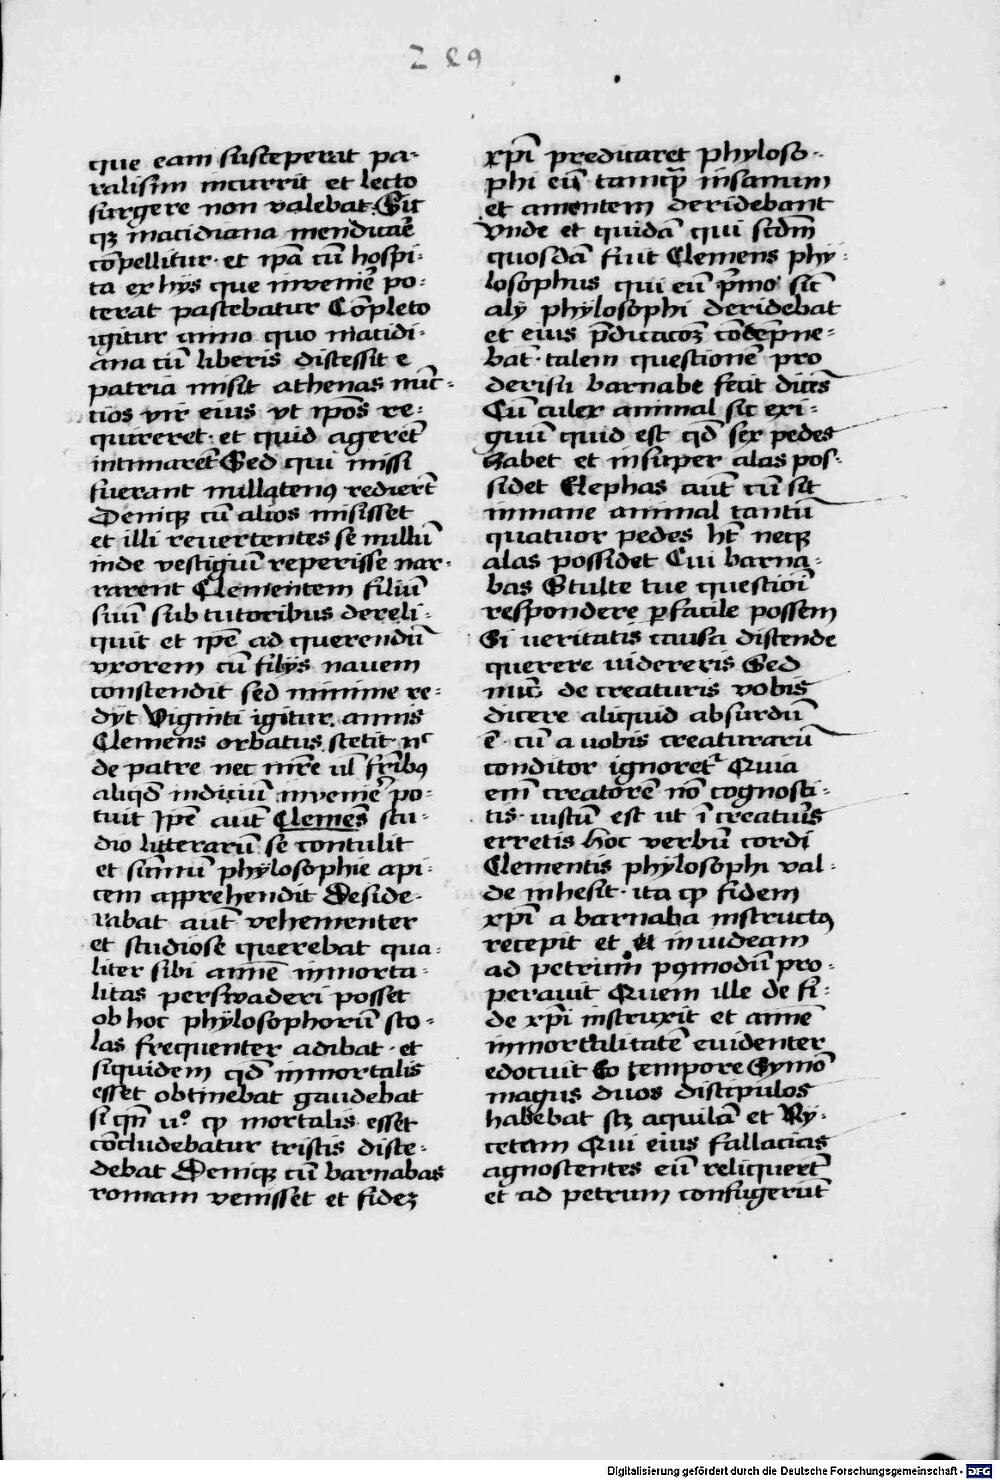 289
que eam susceperat pa-
ralisim incurrit et lecto
surgere non valebat. Sic
qꝫ macidiana mendicar̄e
cōpellitur· et ip̄a cū hospi-
ta ex hijs que invenir̄e po-
terat pascebatur Cōpleto
igitur anno quo macidi-
ana cū liberis discessit e
patria misit athenas nūc-
cios vir eius vt ip̄os re-
quireret· et quid ageret̄
intimaret̄ Sed qui missi
fuerant nullatenꝰ redier̄t
Deniqꝫ cū alios misisset
et illi revertentes se nullū
inde vestigiū reperisse nar-
rarent Clementem filiū
suū sub tutoribus dereli-
quit et ip̄e ad querendū
vxorem cū filijs navem
conscendit sed minime re-
dijt Viginti igitur annis
Clemens orbatus stetit nᶜ
de patre nec mr̄e ul̄ fr̄ibꝰ
aliqd̄ indiciū invenir̄e po-
tuit Ip̄e aut̄ Clemēs stu-
dio litterarū se contulit
et sūmū phylosophie api-
cem apprehendit Deside-
rabat aut̄ vehementer
et studiose querebat qua-
liter sibi anime īmorta-
litas persuaderi posset
ob hoc phylosophorū sco-
las frequenter adibat· et
siquidem qd̄ inmortalis
esset obtinebat gaudebat
si qn̄ uº ꝙ mortalis esset
cōcludebatur tristis disce-
debat Deniqꝫ cū barnabas
romam venisset et fideꝫ
xp̄i predicaret phyloso-
phi eū tamqᷓ insanum
et amentem deridebant
Vnde et quidā qui scd̄m
quosdā fuit Clemens phy-
losophus qui eū p̄mo sic̄
alij phylosophi deridebat
et eius p̄dicacōꝫ cōdēpne-
bat· talem questionē pro
derisu barnabe fecit dicēs
Cū culex animal sit exi-
guū quid est qd̄ sex pedes
habet et insuper alas pos-
sidet Elephas aut̄ cū sit
inmane animal tantū
quatuor pedes ht̄ neqꝫ
alas possidet Cui barna-
bas Stulte tue questioi̅
respondere ꝑfacile possem
Si veritatis causa discende
querere videreris Sed
nūc de creaturis vobis
dicere aliquid absurdū
ē· cū a vobis creaturarū
conditor ignoret᷑ Quia
em̄ creatorē nō cognosci-
tis· iustū est ut ī creatur̄is
erretis Hoc verbū cordi
Clementis phylosophi val-
de inhesit· ita ꝙ fidem
xp̄i a barnaba instructꝰ
recepit et et in iudeam
ad petrum pꝰmodū pro-
peravit Quem ille de fi-
de xp̄i instruxit et anime
inmortalitatē euidenter
edocuit Eo tempore Symō
magus duos discipulos
habebat scꝫ aquilā et Ny-
cetam Qui eius fallacias
agnoscentes eū reliquer̄t
et ad petrum confugerūt
Digitalisierung gefördert durch die Deutsche Forschungsgemeinschaft - DFG